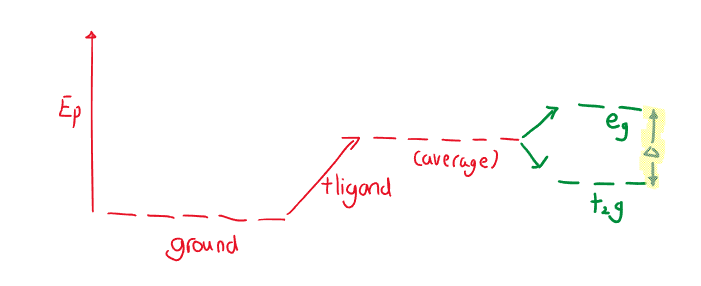 Ep
ground
+ligand
(average)
eg
Δ
t2g